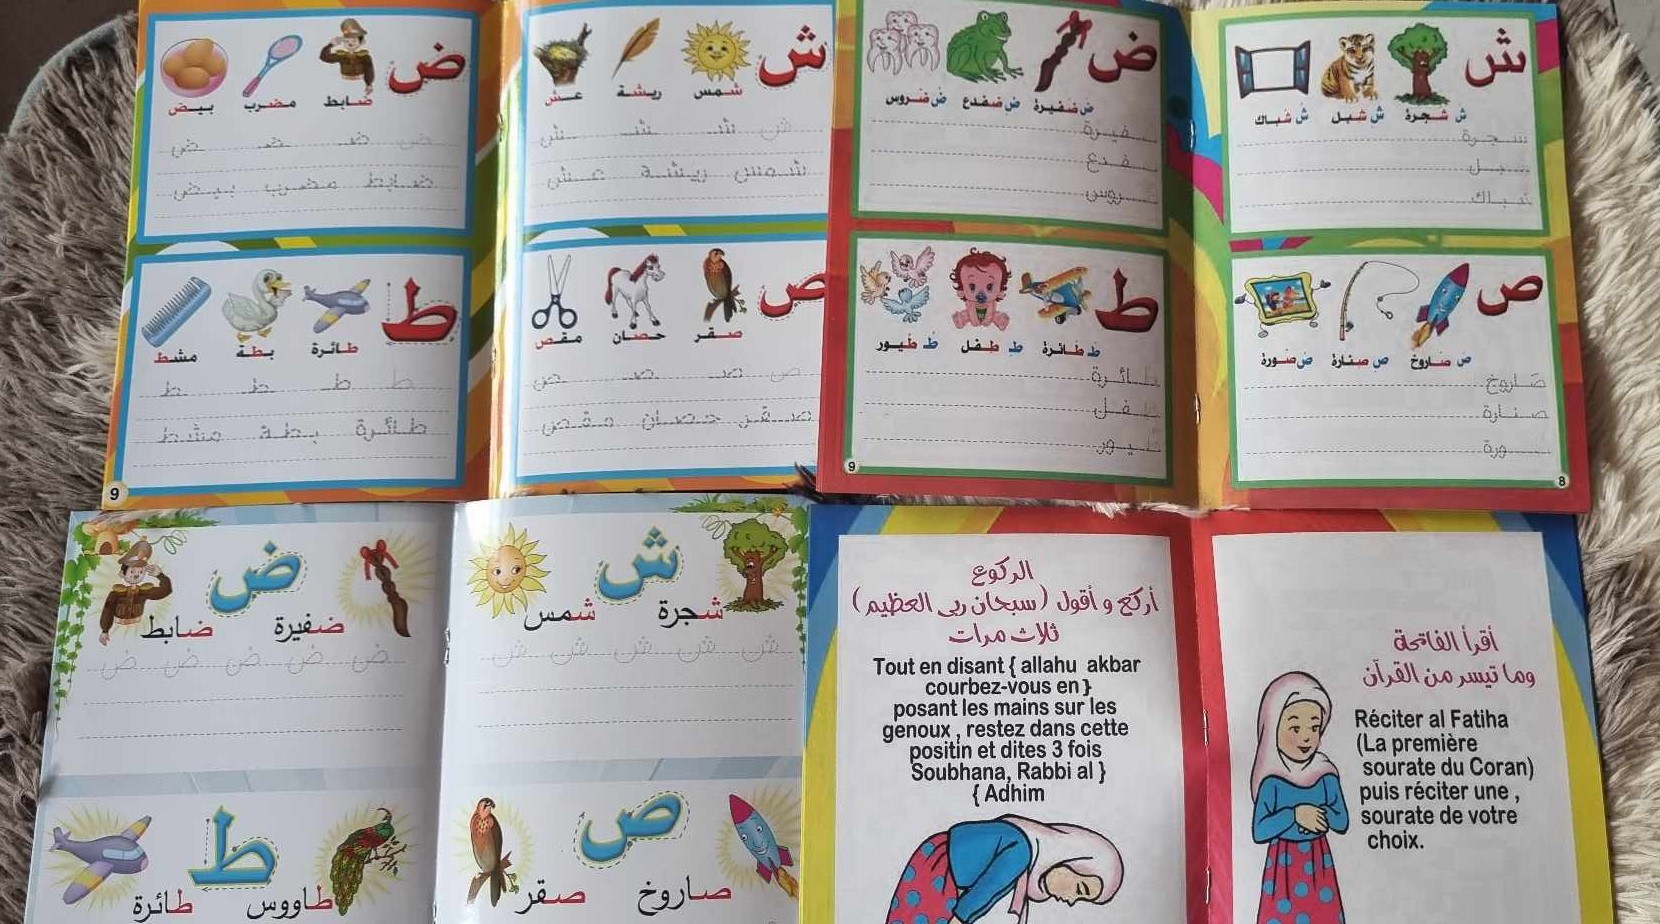 ض
ضابط مضرب بيض
ض ض ض ض
ضابط مضرب بيض
ط
طائرة بطة مشط
ط ط ط ط
طائرة بطة مشط
9
ش
شمس ريشة عش
ش شـ ـشـ ـش
شمس ريشة عش
ص
صقر حصان مقص
ص صـ ـصـ ـص
صقر حصان مقص
ض
ض ضفيرة ض ضفدع ض ضروس
ـفيرة
ـفدع
ـروس
ط
ط طائرة ط طفل ط طيور
طـائرة
ـفل
ـيور
9
ش
ش شجرة ش شبل ش شباك
شجرة
شبل
شباك
ص
ص صاروخ ص صنارة ص صورة
صاروخ
صنارة
ـورة
8
ض
ضفيرة ضابط
ض ض ض ض ض
ط
طاووس طائرة
ش
شجرة شمس
ش ش ش ش ش
ص
صاروخ صقر
الركوع
أركع و أقول (سبحان ربى العظيم)
ثلاث مرات
Tout en disant { allahu akbar
courbez-vous en }
posant les mains sur les
genoux , restez dans cette
positin et dites 3 fois
Soubhana, Rabbi al }
{ Adhim
أقرأ الفاتحة
وما تيسر من القرآن
Réciter al Fatiha
(La première
sourate du Coran)
puis réciter une ,
sourate de votre
choix.